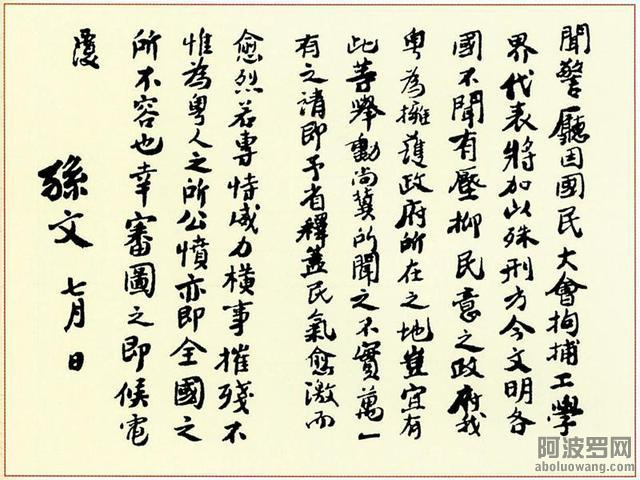 聞警廳因國民大會拘捕工學
界代表將加以殊刑方今文明各
國不聞有壓抑民意之政府我
粤為擁護政府所在之地豈宜有
此等舉動尚冀所聞之不實萬一
有之請即予省釋蓋民氣愈激而
愈烈若專恃威力橫事摧殘不
惟為粤人之所公憤亦即全國之
所不容也幸審圖之即候電
覆
孫文 七月 日
阿波罗网
aboluowang.com